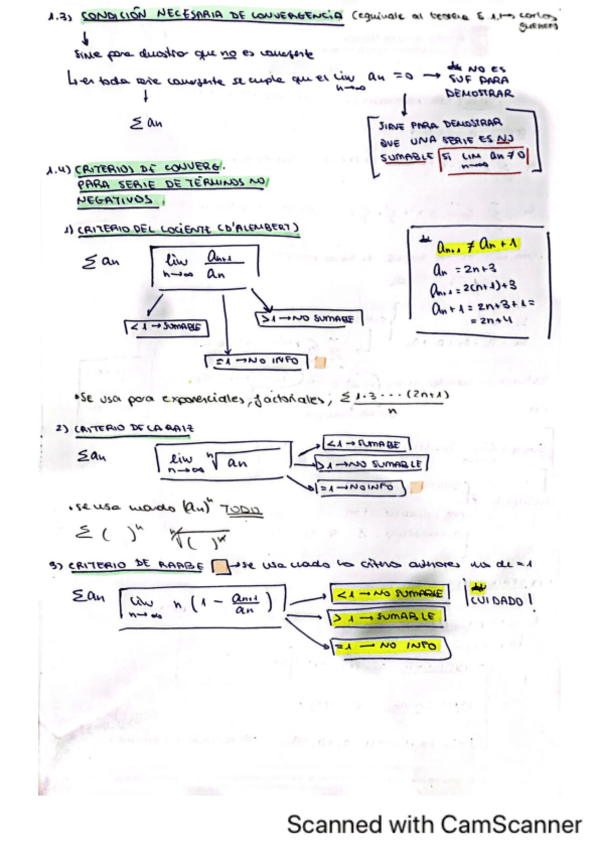 1.3) CONDICIÓN NECESARIA DE CONVERGENCIA (equivale al
Sirve para demostrar que no es convergente
→ en toda serie convergente se cumple que el lim n→∞ an = 0 → * NO ES SUF PARA DEMOSTRAR
Σ an
SIRVE PARA DEMOSTRAR QUE UNA SERIE ES NO SUMABLE SI LIM n→∞ an ≠ 0
1.4) CRITERIOS DE CONVERG.
PARA SERIE DE TÉRMINOS NO
NEGATIVOS.
1) CRITERIO DEL COCIENTE (D'ALEMBERT)
Σ an lim n→∞ an+1 / an
< 1 → SUMABLE
> 1 → NO SUMABLE
= 1 → NO INFO
* an+1 ≠ an + 1
an = 2n+3
an+1 = 2(n+1)+3
an + 1 = 2n+3+1 =
= 2n+4
• Se usa para exponenciales, factoriales, Σ 1·3···(2n+1) / n
2) CRITERIO DE LA RAIZ
Σ an lim n→∞ ⁿ√an
< 1 → SUMABLE
> 1 → NO SUMABLE
= 1 → NO INFO
• se usa cuando (an)ⁿ TODO
Σ ( )ⁿ ⁿ√( )ⁿ
3) CRITERIO DE RAABE → se usa cuando los criterios anteriores nos de = 1
Σ an lim n→∞ n (1 - an+1 / an)
< 1 → NO SUMABLE
> 1 → SUMABLE
= 1 → NO INFO
* ¡CUIDADO!
Scanned with CamScanner